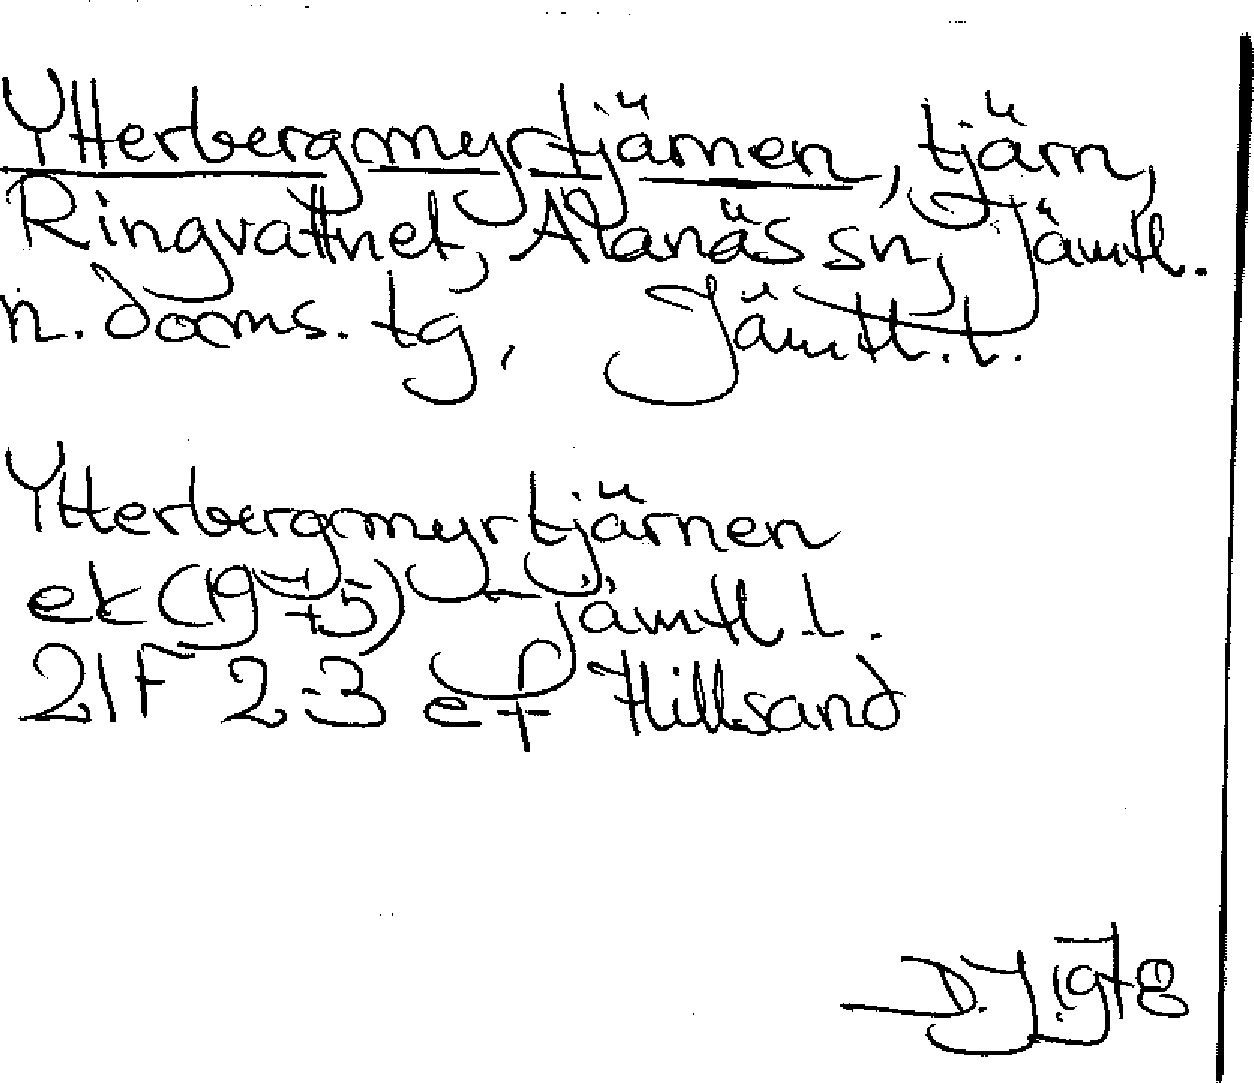 Ytterbergmyrtjärnen, tjärn,
Ringvattnet, Alanäs sn, Jämtl.
n. doms. tg, Jämtl. l.
Ytterbergmyrtjärnen
ek (1975) Jämtl. l.
21F 2-3 ef Hillsand
D.J 1978